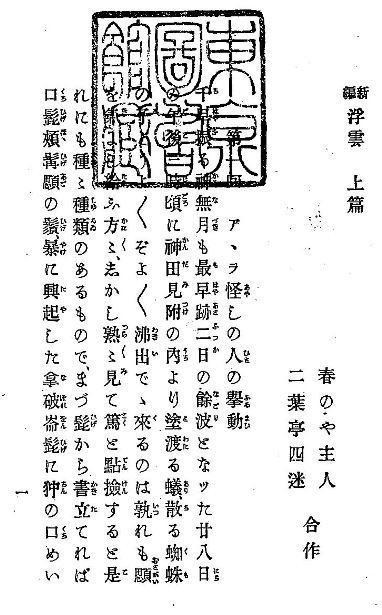 新編 浮雲 上篇
春のや主人
二葉亭四迷 合作
東京圖書館藏
第一回 アヽラ怪しの人の擧動
千早振る神無月も最早跡二日の餘波となッた廿八日
の午後三時頃に神田見附の内より塗渡る蟻、散る蜘蛛
の子とうよ〳〵ぞよ〳〵沸出でゝ來るのは孰れも顋
を氣にし給ふ方々、志かし熟々見て篤と點撿すると是
れにも種々種類のあるもので、まづ髭から書立てれば
口髭頬髯顋の鬚、暴に興起した拿破崙髭に狆の口めい
一